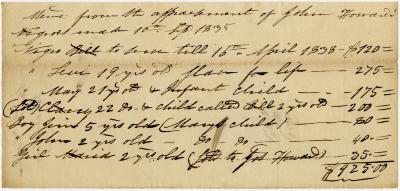 Memo from the appraisement of John Howard's
Negroes made 10th Sep 1835
Negro Bill to serve till 15th April 1838 - $120=
" Levi 19 yrs old slave for life - 275=
" May 21 yrs old & Infant child - - 175=
22 do. & child called Bill 2 yrs old - 200=
Boy Jim 5 years old (Mary's child) - 80=
" John 2 yrs old - Do Do - 40=
Girl Maria 2 yrs old ( to Jos Howard) 35.=
$925.00